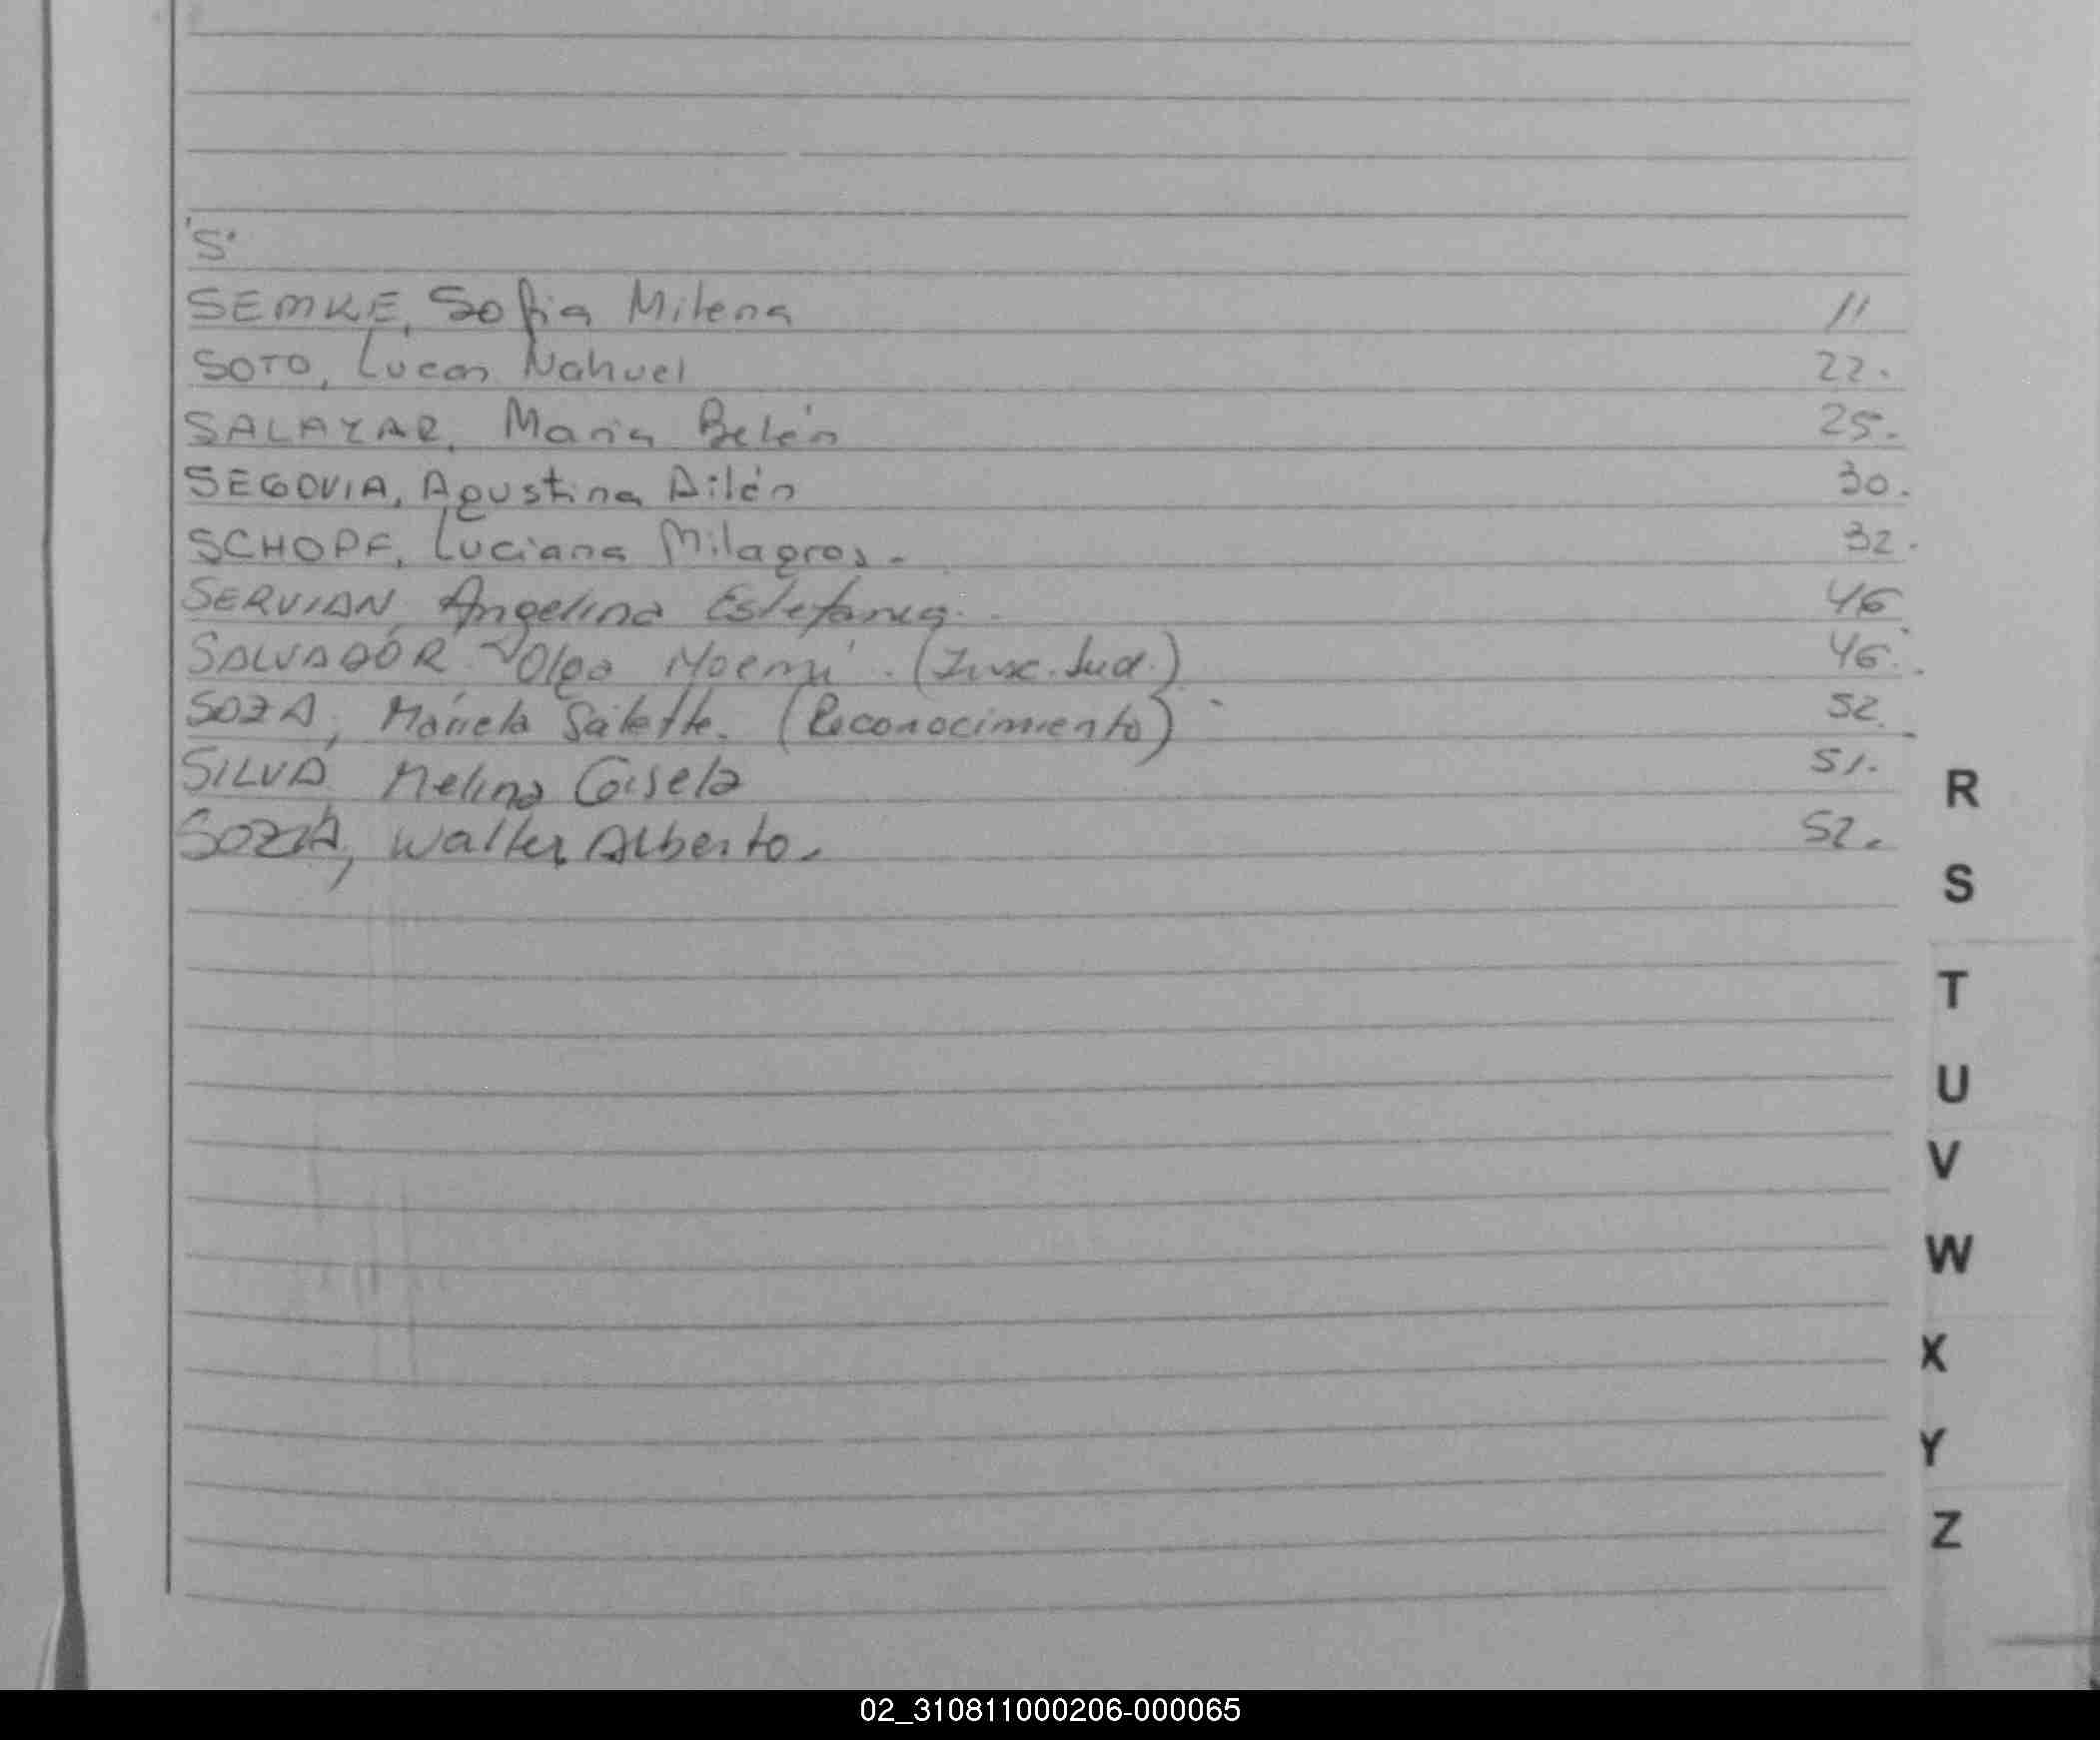 'S'
SEMKE, Sofia Milena 11
SOTO, Lucas Nahuel 22.
SALAZAR, Maria Belén 25.
SEGOVIA, Agustina Ailén 30.
SCHOPF, Luciana Milagros. 32.
SERVIAN, Angelina Estefania. 46
SALVADOR Olga Noemí. (Insc. Jud.) 46.
SOZA, Mariela Salette. (Reconocimiento) 52.
SILVA Melina Gisela 51.
SOZA, Walter Alberto. 52.
R
S
T
U
V
W
X
Y
Z
02_310811000206-000065